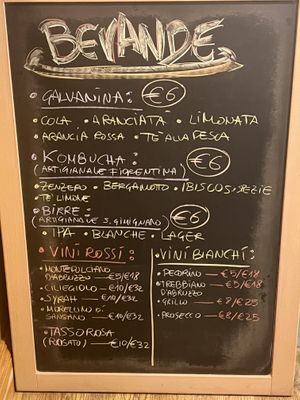 BEVANDE
• GALVANINA: €6
• COLA • ARANCIATA • LIMONATA
• ARANCIA ROSSA • TÈ ALLA PESCA
• KOMBUCHA: €6
(ARTIGIANALE FIORENTINA)
• ZENZERO • BERGAMOTO • IBISCO E SPEZIE
• TÈ LIMONE
• BIRRE: €6
(ARTIGIANALE S. GIMIGNANO)
• IPA • BLANCHE • LAGER
• VINI ROSSI:
• MONTEPULCIANO
D'ABRUZZO — €5/€18
• CILIEGIOLO — €10/€32
• SYRAH — €10/€32
• MORELLINO DI
SANSANO — €10/€32
• TASSO ROSA
(ROSATO) — €10/€32
• VINI BIANCHI:
• PECORINO — €5/€18
• TREBBIANO — €5/€18
D'ABRUZZO
• GRILLO — €7/€25
• PROSECCO — €8/€25